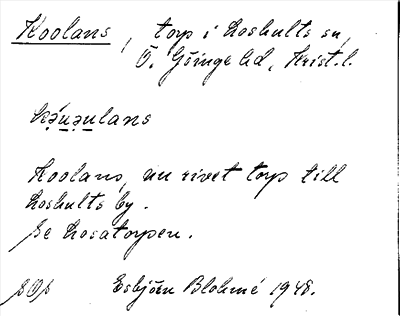 Koolans, torp i Loshults sn,
Ö. Göinge hd, Krist. l.
kǝ́u̲ǝu̲lans
Koolans, nu rivet torp till
Loshults by.
Se Kosatorpen.
Esbjörn Blohmé 1948.